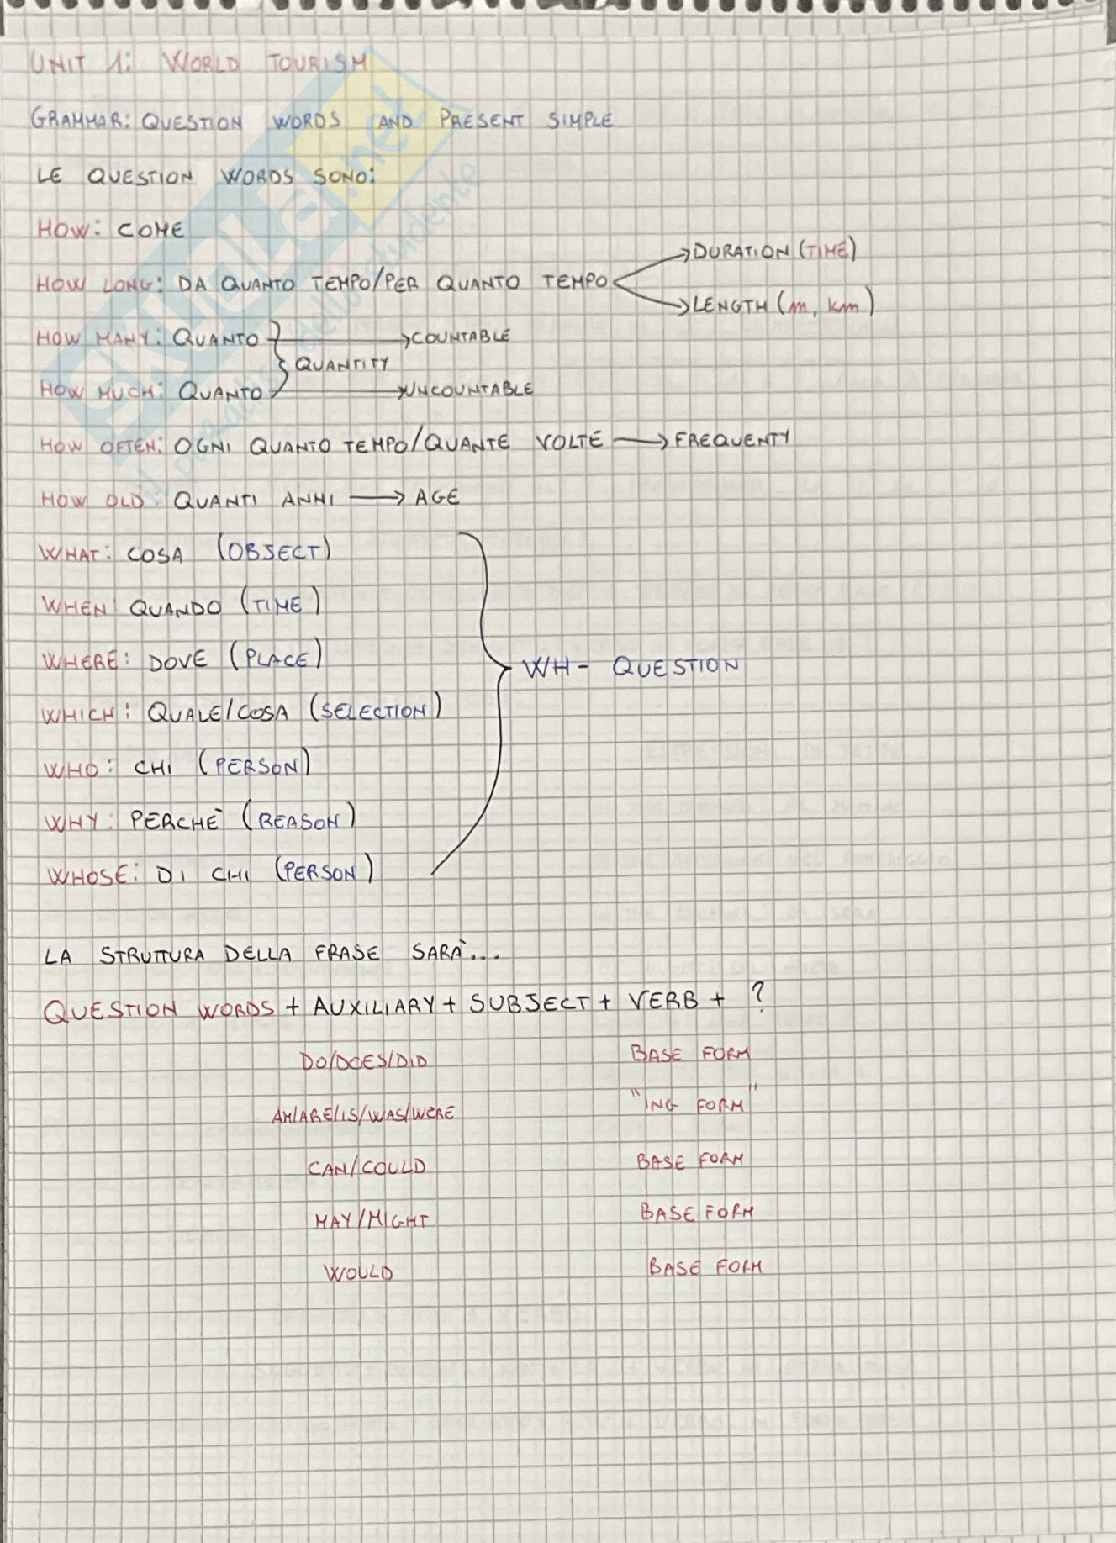 UNIT 1: WORLD TOURISM
GRAMMAR: QUESTION WORDS AND PRESENT SIMPLE
LE QUESTION WORDS SONO:
HOW: COME
HOW LONG: DA QUANTO TEMPO/PER QUANTO TEMPO → DURATION (TIME)
→ LENGTH (m, km)
HOW MANY: QUANTO → COUNTABLE
QUANTITY
HOW MUCH: QUANTO → UNCOUNTABLE
HOW OFTEN: OGNI QUANTO TEMPO/QUANTE VOLTE → FREQUENTY
HOW OLD: QUANTI ANNI → AGE
WHAT: COSA (OBJECT)
WHEN: QUANDO (TIME)
WHERE: DOVE (PLACE)
WH- QUESTION
WHICH: QUALE/COSA (SELECTION)
WHO: CHI (PERSON)
WHY: PERCHÈ (REASON)
WHOSE: DI CHI (PERSON)
LA STRUTTURA DELLA FRASE SARÀ...
QUESTION WORDS + AUXILIARY + SUBJECT + VERB + ?
DO/DOES/DID BASE FORM
AM/ARE/IS/WAS/WERE "ING FORM"
CAN/COULD BASE FORM
MAY/MIGHT BASE FORM
WOULD BASE FORM
SKUOLA.net